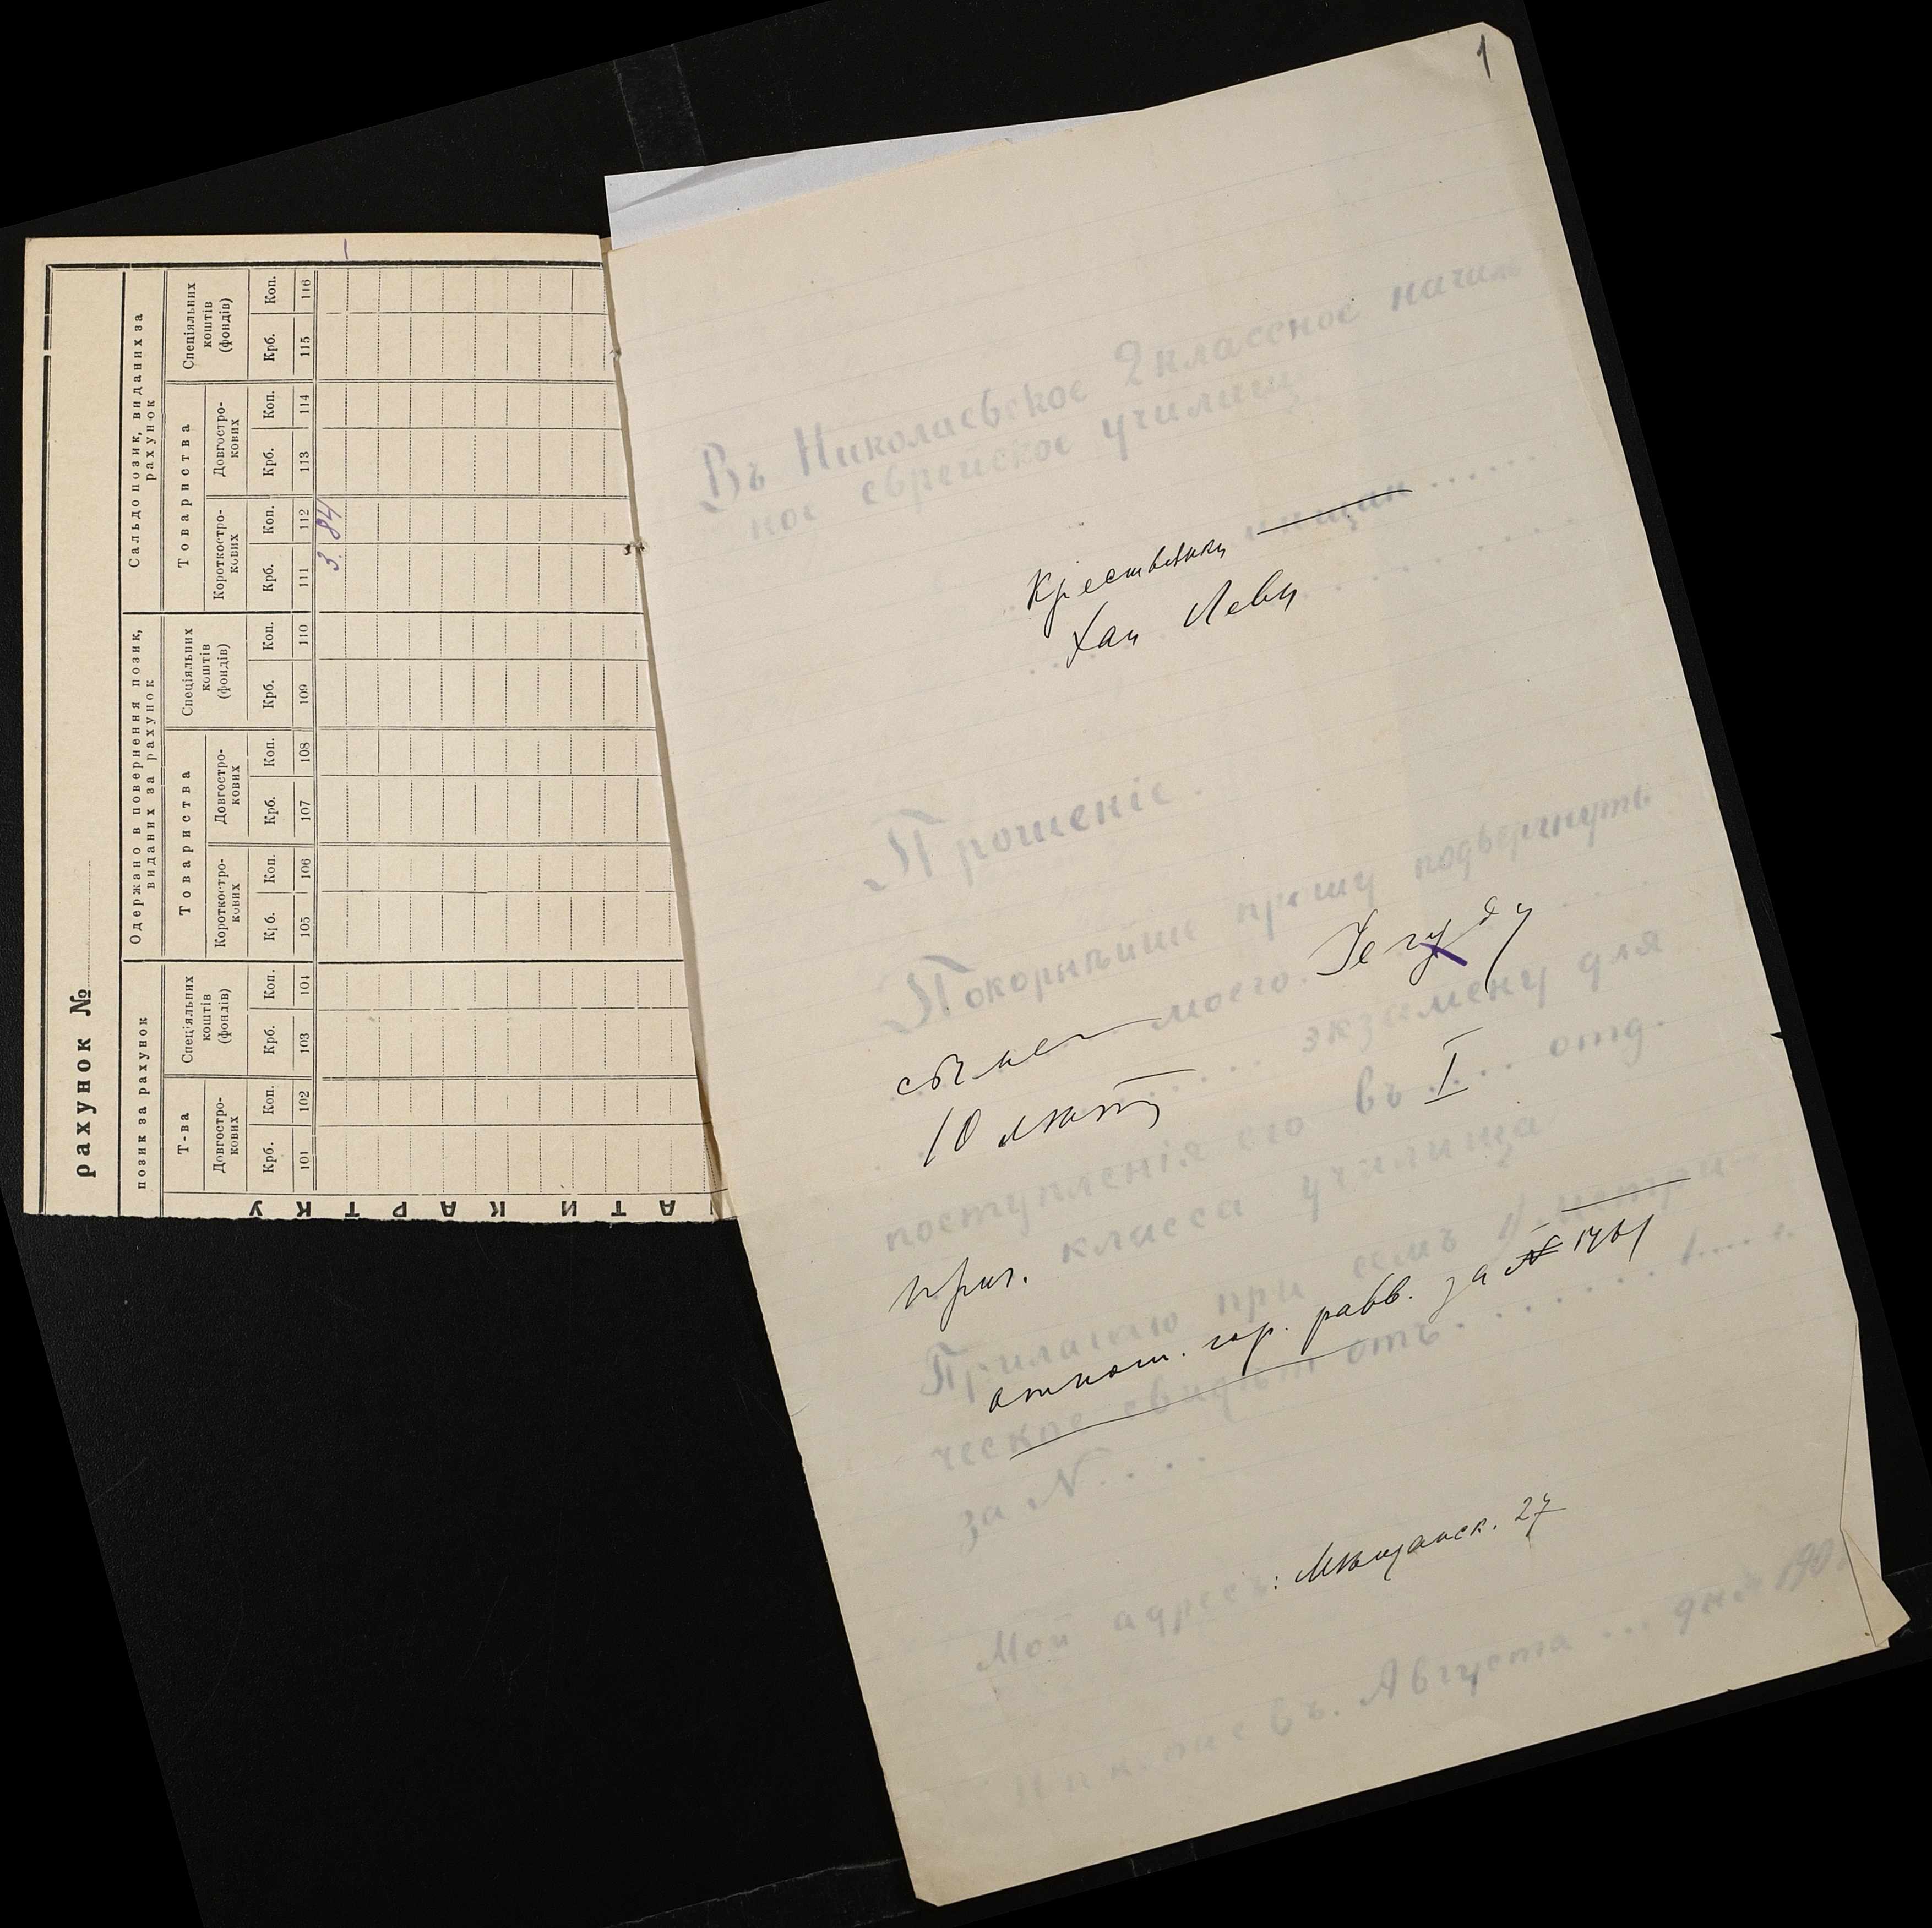 рахунок №
позик за рахунок
Одержано в повернення позик, виданих за рахунок
Сальдо позик, виданих за рахунок
Т-ва
Спеціяльних коштів (фондів)
Товариства
Спеціяльних коштів (фондів)
Товариства
Спеціяльних коштів (фондів)
Довгостро-кових
Короткостро-кових
Довгостро-кових
Короткостро-кових
Довгостро-кових
Крб. Коп. Крб. Коп. Крб. Коп. Крб. Коп. Крб. Коп. Крб. Коп. Крб. Коп. Крб. Коп.
101 102 103 104 105 106 107 108 109 110 111 112 113 114 115 116
3. 84
АТИ КАРТКУ
1
Въ Николаевское 2 классное началь
ное еврейское училищ
Крестьянки
Хаи Левц
Прошеніе.
Покорнѣйше прошу подвергнуть
моего. Iегуду
10 лѣтъ экзамену для
поступленія его въ I отд.
приг. класса училища
Прилагаю при семъ 1) метри-
отнош. гор. равв. за № 1461
ческое свидѣт отъ
за N....
Мой адресъ: Мѣщанск. 27
Николаевъ. Августа ... дня 190